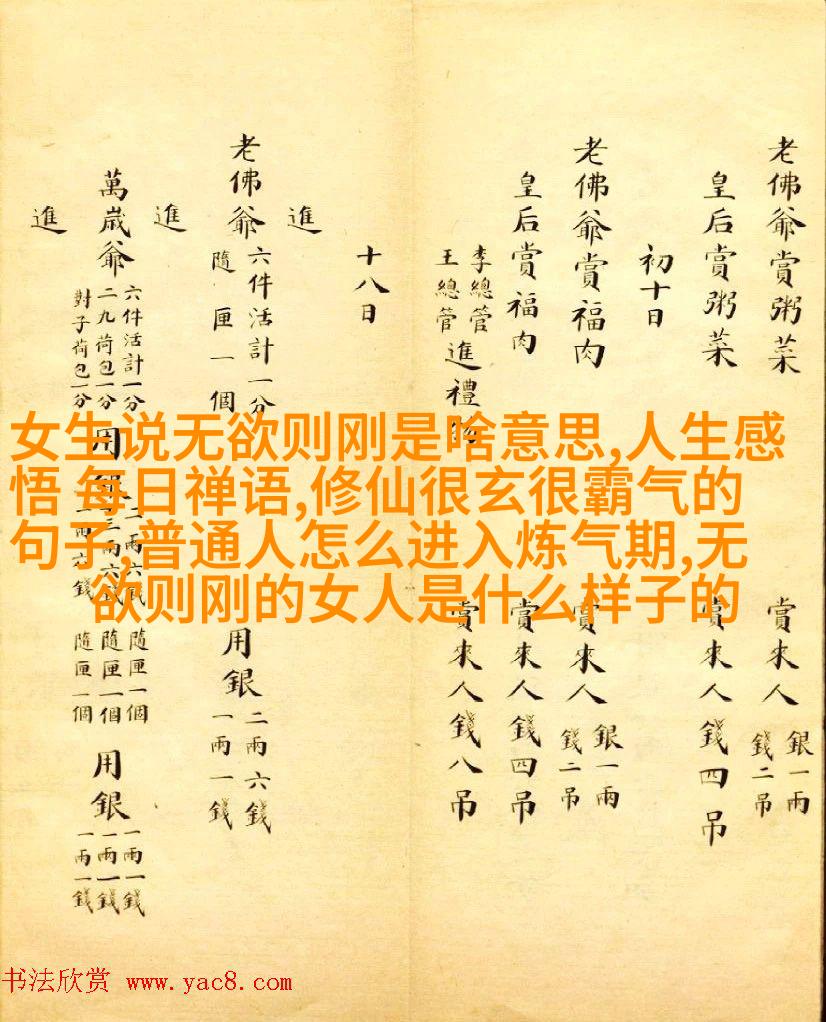 老佛爺賞粥菜
賞來人
銀一兩
錢二吊
皇后賞粥菜
賞來人錢四吊
初十日
老佛爺賞福肉
賞來人
銀一兩
錢二吊
皇后賞福肉
賞來人錢四吊
李總管
王總管
進禮
賞來人錢八吊
十八日
進
老佛爺
六件活計一分
隨匣一個
用銀
二兩六錢
一兩一錢
進
萬歲爺
六件活計一分
二九荷包一分
對子荷包一分
用
隨匣一個
隨匣一個
隨匣一個
用銀
一兩一錢
一兩一錢
一兩一錢
進
女生说无欲则刚是啥意思,人生感
悟 每日禅语,修仙很玄很霸气的
句子,普通人怎么进入炼气期,无
欲则刚的女人是什么样子的
书法欣赏 www.yac8.com